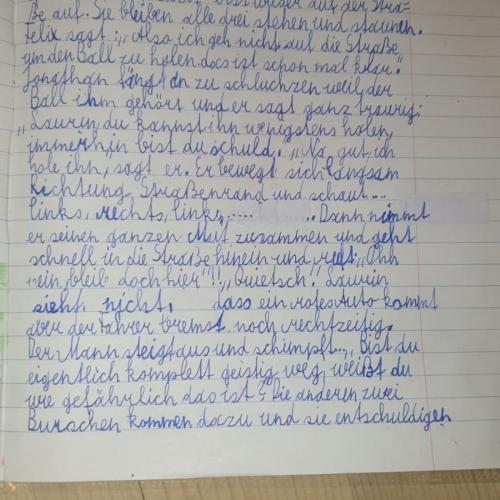 wieder auf der Stra=
ße auf. Sie bleiben alle drei stehen und staunen.
Felix sagt: „Also ich geh nicht auf die Straße
um den Ball zu holen das ist schon mal klar."
Jonathan fängt an zu schluchzen weil der
Ball ihm gehört und er sagt ganz traurig:
„Laurin, du kannst ihn wenigstens holen,
immerhin bist du schuld." „Na gut, ich
hole ihn, sagt er. Er bewegt sich langsam
Richtung Straßenrand und schaut...
links, rechts, links, ..... .... Dann nimmt
er seinen ganzen Mut zusammen und geht
schnell in die Straße hinein und ruft: „Ohh
nein, bleib doch hier"!! „Quietsch!" Laurin
sieht nicht, dass ein rotes Auto kommt
aber der Fahrer bremst noch rechtzeitig.
Der Mann steigt aus und schimpft... „Bist du
eigentlich komplett geistig weg, weißt du
wie gefährlich das ist? Die anderen zwei
Burschen kommen dazu und sie entschuldigen